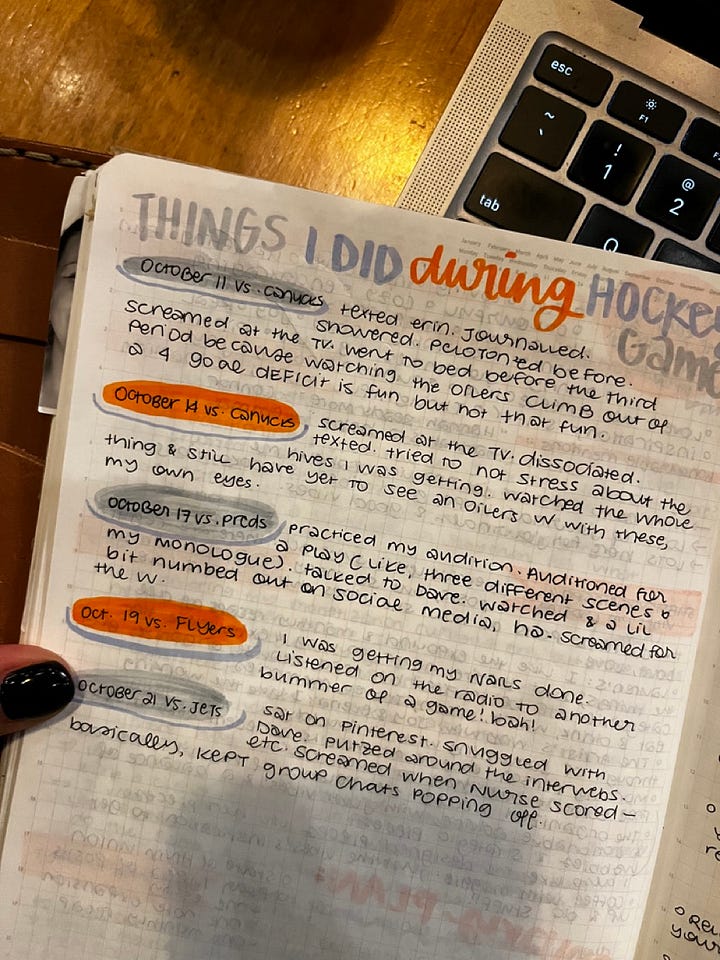 esc
F1
~
`
!
1
@
2
tab
Q
THINGS I DID during HOCKE
Game
October 11 vs. Canucks
texted erin. Journaled.
showered. Pelotoned before.
screamed at the TV. went to bed before the third
period because watching the oilers climb out of
a 4 goal deficit is fun but not that fun.
October 14 vs. Canucks
screamed at the TV. dissociated.
texted. tried to not stress about the
hives I was getting. watched the whole
thing & still have yet to see an oilers W with these,
my own eyes.
October 17 vs. Preds
practiced my audition. Auditioned for
a play (like, three different scenes &
my monologue). talked to Dave. watched & a lil
bit numbed out on social media, ha. screamed for
the W.
Oct. 19 vs. Flyers
I was getting my nails done.
Listened on the radio to another
bummer of a game! bah!
October 21 vs. Jets
sat on Pinterest. snuggled with
Dave. putzed around the interwebs.
etc. screamed when Nurse scored –
basically, kept group chats popping off.